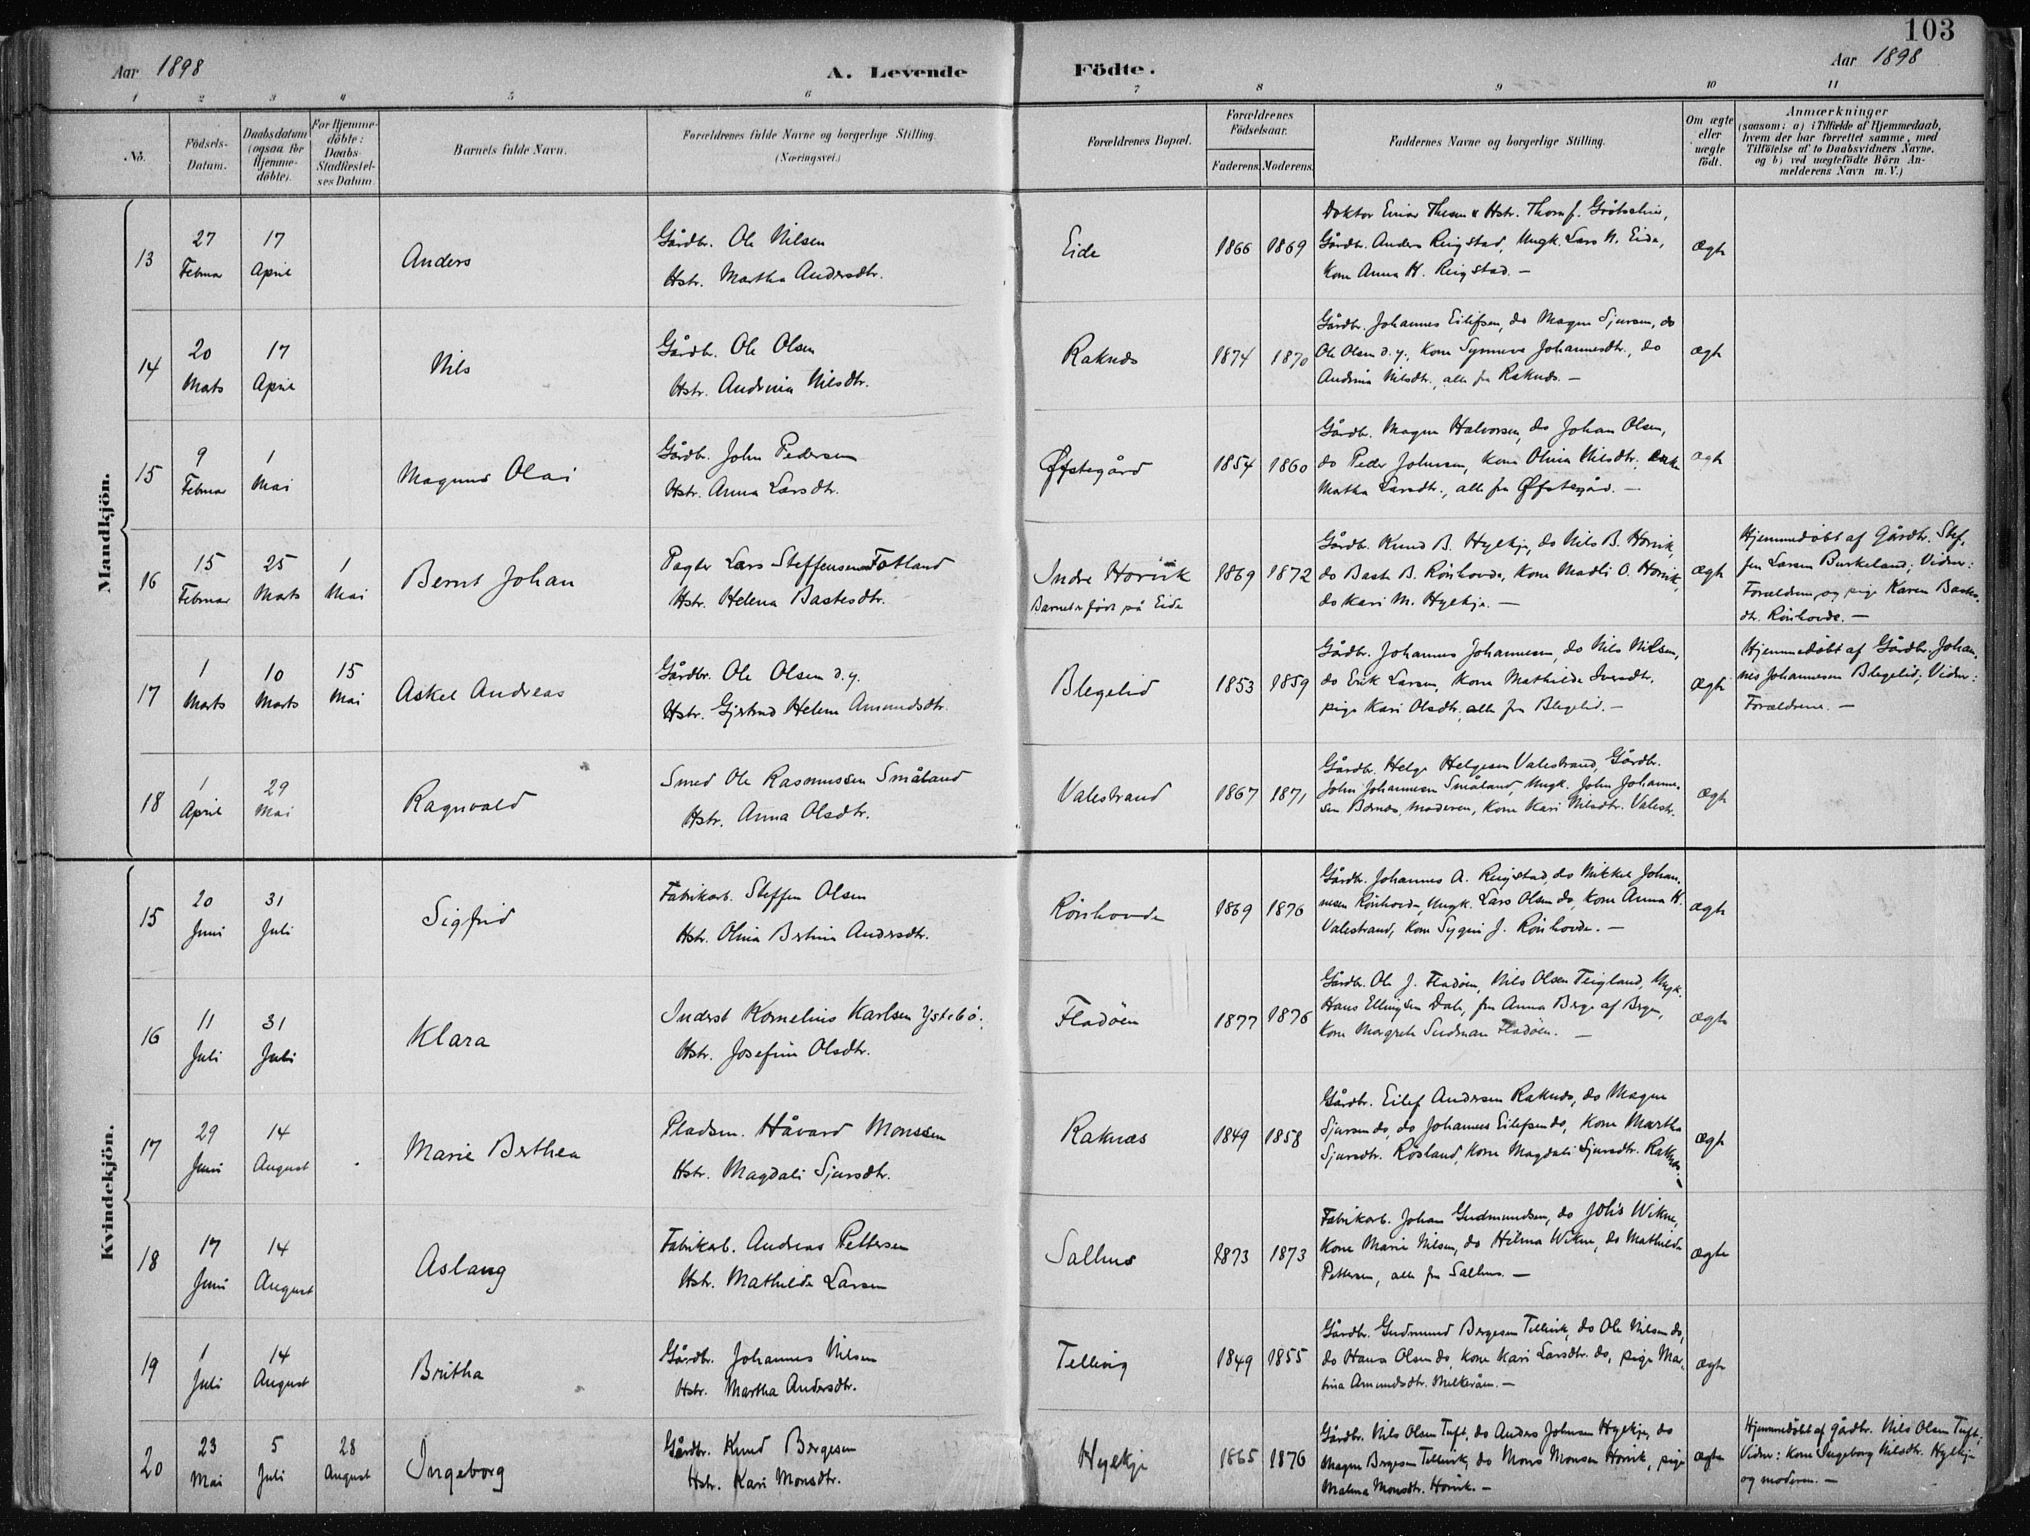 103
Aar 1898
A. Levende Födte.
Aar 1898
1 2 3 4 5 6 7 8 9 10 11
No.
Födsels-
Datum.
Daabsdatum
(ogsaa for
Hjemme-
döbte).
For Hjemme-
döbte:
Daabs-
Stadfestel-
ses Datum.
Barnets fulde Navn.
Forældrenes fulde Navne og borgerlige Stilling.
(Næringsvei.)
Forældrenes Bopæl.
Forældrenes
Födselsaar.
Faderens. Moderens.
Faddernes Navne og borgerlige Stilling.
Om ægte
eller
uægte
födt.
Anmærkninger
(saasom: a) i Tilfælde af Hjemmedaab,
hvem der har forrettet samme, med
Tilföielse af to Daabsvidners Navne,
og b) ved uægtefödte Börn An-
melderens Navn m. V.)
Mandkjön.
13
27 Februar
17 April
Anders
Gårdbr. Ole Nilsen
Hstr. Martha Andersdtr.
Eide
1866 1869
Doktor Einar Thesen & Hstr. Thora f.
Gårdbr. Anders Ringstad, Ungk. Lars N. Eide,
Kone Anna H. Ringstad. —
Ægte
14
20 Mats
17 April
Nils
Gårdbr. Ole Olsen
Hstr. Andrina Nilsdtr.
Raknæs
1874 1870
Gårdbr. Johannes Eilefsen, do Magne Sjursen, do
Ole Olsen d. y., Kone Synneva Johannesdtr., do
Andrina Nilsdtr., alle fra Raknæs. —
ægte
15
9 Februar
1 Mai
Magnus Olai
Gårdbr. John Pedersen
Hstr. Anna Larsdtr.
Øfstegård
1854 1860
Gårdbr. Magne Halvorsen, do Johan Olsen,
do Peder Johnsen, Kone Olina Nilsdtr., enke
Martha Larsdtr., alle fra Øfstegård. —
ægte
16
15 Februar
25 Marts
1 Mai
Bernt Johan
Pagter Lars Steffensen Fotland
Hstr. Helena Bastesdtr.
Indre Horvik
Barnet er født på Eide
1869 1872
Gårdbr. Knud B. Hylkje, do Nils B. Horvik,
do Baste B. Rönhovde, Kone Madli O. Horvik,
do Kari M. Hylkje. —
ægte
Hjemmedöbt af Gårdbr. Stef-
fen Larsen Burkeland; Vidner:
Forældrene, og pige Karen Bastes-
dtr. Rönhovde. —
17
1 Marts
10 Marts
15 Mai
Askel Andreas
Gårdbr. Ole Olsen d. y.
Hstr. Gjertrud Helene Amundsdtr.
Blegelid
1853 1859
Gårdbr. Johannes Johannesen, do Nils Nilsen,
do Erik Larsen, Kone Mathilde Iversdtr.
pige Kari Olsdtr. alle fra Blegelid. —
Ægte
Hjemmedöbt af Gårdbr. Johan-
nes Johannesen Blegelid; Vidner:
Forældrene. —
18
1 April
29 Mai
Ragnvald
Smed Ole Rasmussen Småland
Hstr. Anna Olsdtr.
Valestrand
1867 1871
Gårdbr. Helge Helgesen Valestrand, Gårdbr.
John Johannesen Småland, Ungk. John Johanne-
sen Bernæs, Moderen, Kone Kari Nilsdtr. Valestr.
Ægte
Kvindekjön.
15
20 Juni
31 Juli
Sigfrid
Fabrikarb. Steffen Olsen
Hstr. Olina Bertina Andersdtr.
Rönhovde
1869 1876
Gårdbr. Johannes A. Ringstad, do Mikkel Johan-
nesen Rönhovde, Ungk. Lars Olsen do, Kone Anna H.
Valestrand, Kone Sygni J. Rönhovde. —
ægte
16
11 Juli
31 Juli
Klara
Inderst Kornelius Karlsen Ystebö.
Hstr. Josefine Olsdtr.
Fladöen
1877 1876
Gårdbr. Ole J. Fladöen, Nils Olsen Teigland, Ungk.
Hans Ellingsen Dale, fru Anna Berge af Bergen,
Kone Margrete Sudman Fladöen. —
ægte
17
29 Juni
14 August
Marie Berthea
Pladsm. Håvard Monssen
Hstr. Magdali Sjursdtr.
Raknæs
1849 1858
Gårdbr. Eilef Andersen Raknæs, do Magne
Sjursen do, do Johannes Eilefsen do, Kone Martha
Sjursdtr. Rosland, Kone Magdali Sjursdtr. Raknæs.
—
ægte
18
17 Juni
14 August
Aslaug
Fabrikarb. Andreas Pettersen
Hstr. Mathilde Larsen
Salhus
1873 1873
Fabrikarb. Johan Gudmundsen, do Johs Wikne,
Kone Marie Nilsen, do Hilma Wikne, do Mathilde
Pettersen, alle fra Salhus. —
ægte
19
1 Juli
14 August
Britha
Gårdbr. Johannes Nilsen
Hstr. Martha Andersdtr.
Tellevig
1849 1855
Gårdbr. Gudmund Bergesen Tellevik, do Ole Nilsen do,
do Hans Olsen do, Kone Kari Larsdtr. do, pige Mar-
tina Amundsdtr. Milkeråen. —
ægte
20
23 Mai
5 Juli
28 August
Ingeborg
Gårdbr. Knud Bergesen
Hstr. Kari Monsdtr.
Hylkje
1865 1876
Gårdbr. Nils Olsen Tuft, do Anders Johnsen Hylkje, do
Magne Bergesen Tellevik, do Mons Monsen Horvik, pige
Malina Monsdtr. Horvik. —
ægte
Hjemmedöbt af gårdbr. Nils Olsen Tuft,
Vidner: Kone Ingeborg Nilsdtr. Hylkje
og moderen. —